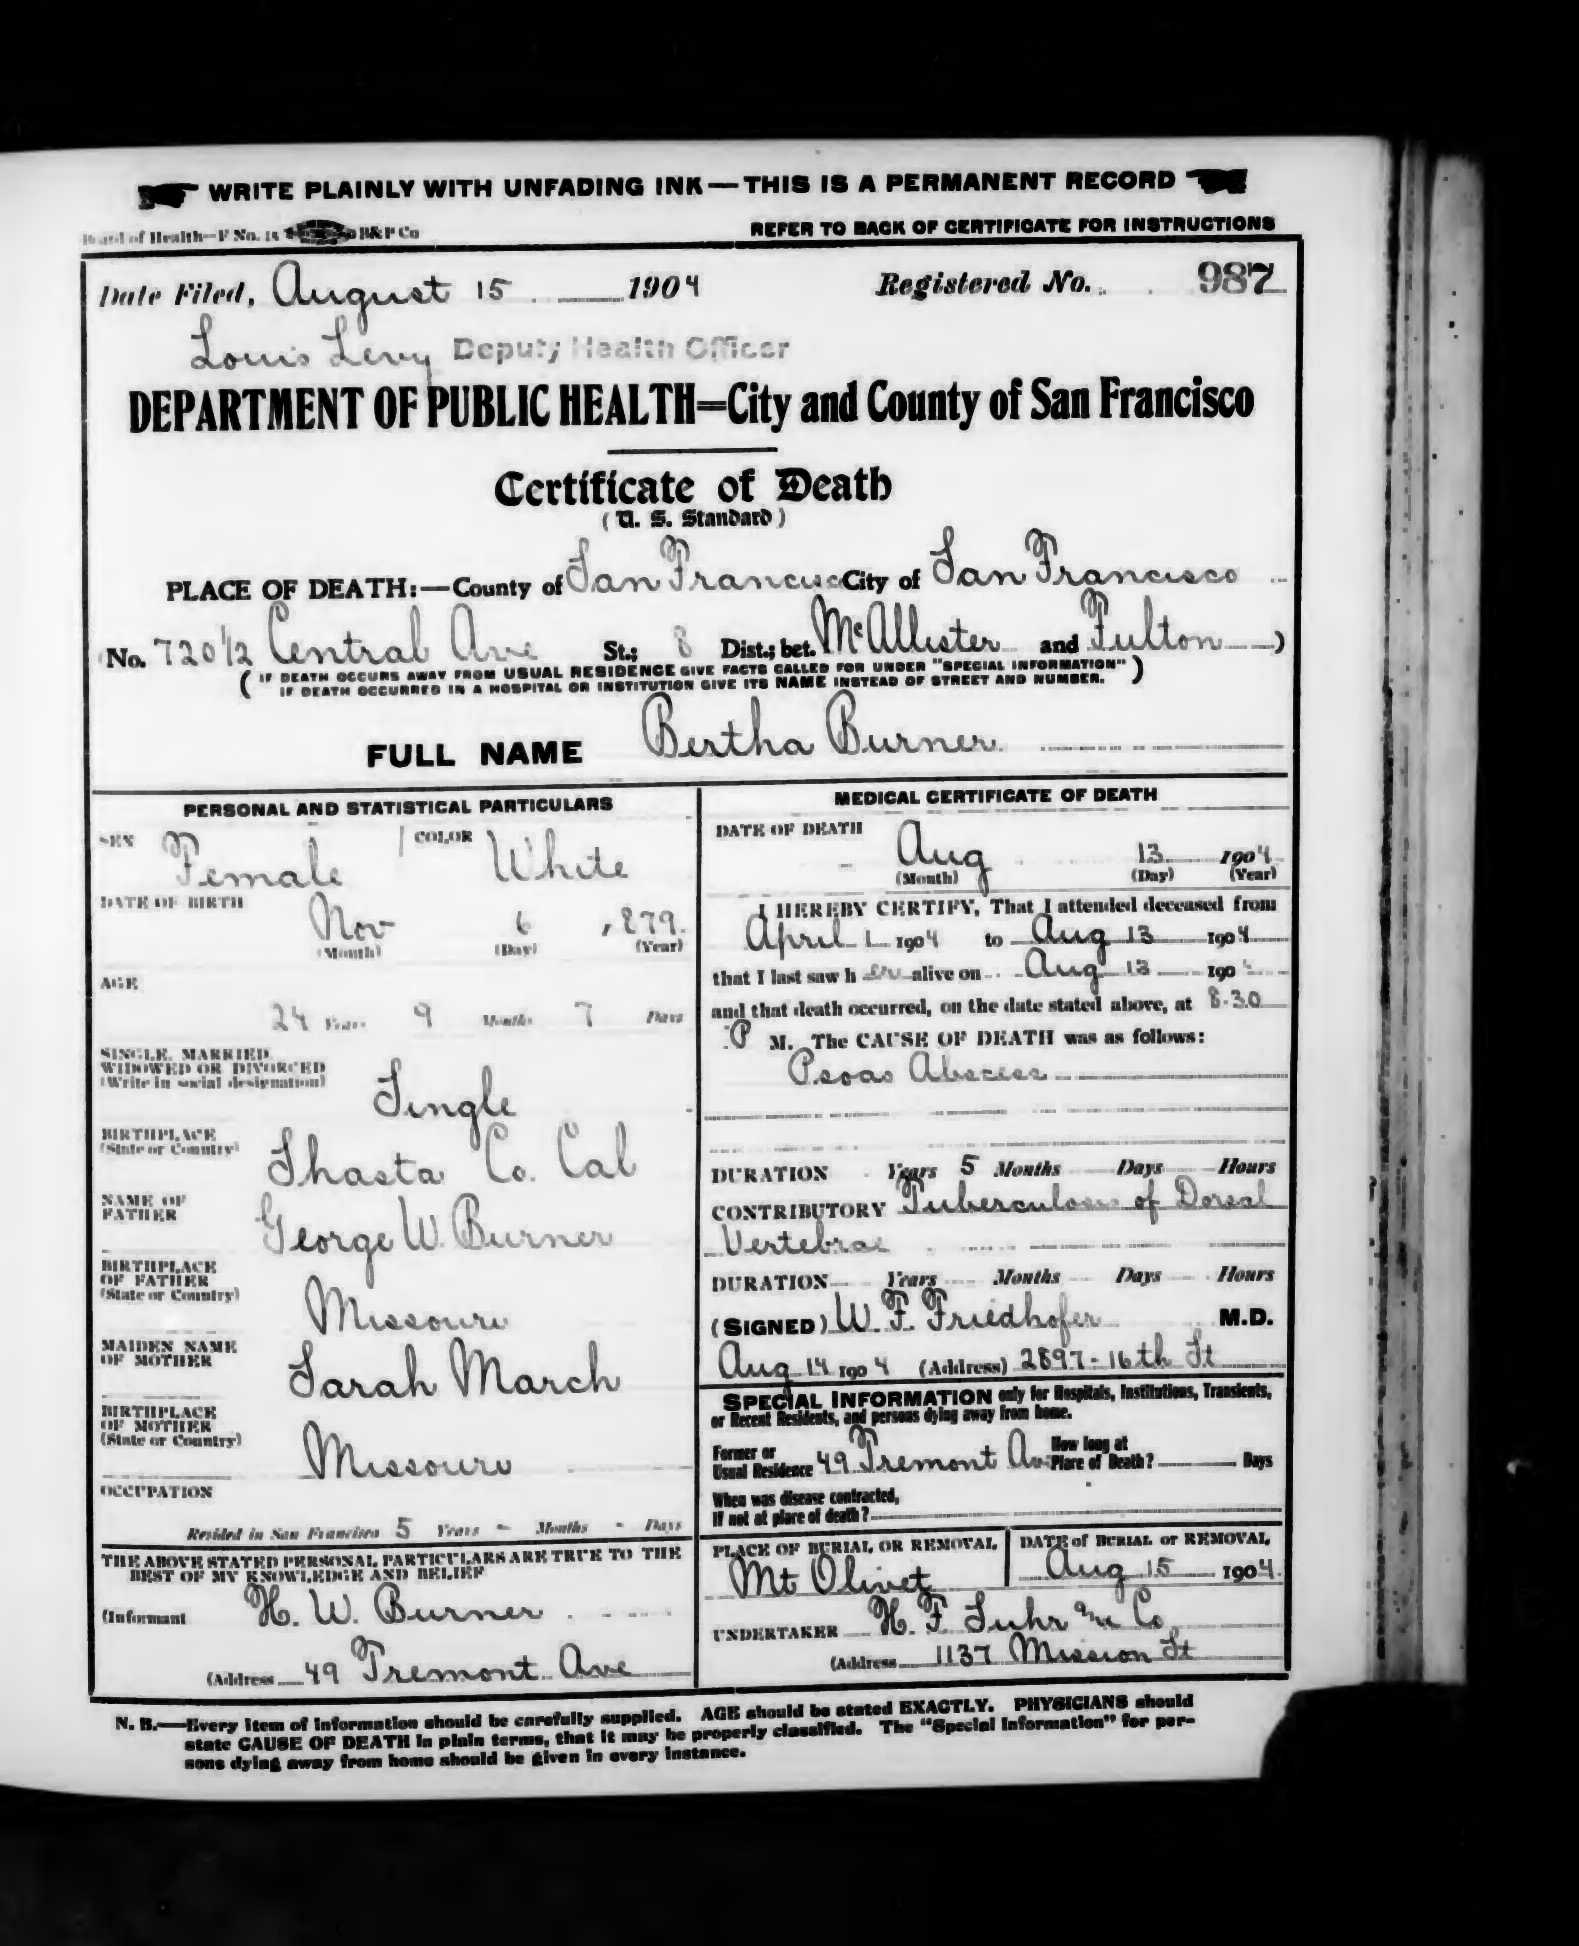 WRITE PLAINLY WITH UNFADING INK — THIS IS A PERMANENT RECORD
Board of Health—F No. 15 B&P Co
REFER TO BACK OF CERTIFICATE FOR INSTRUCTIONS
Date Filed, August 15 1904 Registered No. 987
Louis Levy Deputy Health Officer
DEPARTMENT OF PUBLIC HEALTH=City and County of San Francisco
Certificate of Death
(U. S. Standard)
PLACE OF DEATH:—County of San Francisco City of San Francisco
(No. 720 1/2 Central Ave St.; 8 Dist.; bet. McAllister and Fulton )
(IF DEATH OCCURS AWAY FROM USUAL RESIDENCE GIVE FACTS CALLED FOR UNDER "SPECIAL INFORMATION"
IF DEATH OCCURRED IN A HOSPITAL OR INSTITUTION GIVE ITS NAME INSTEAD OF STREET AND NUMBER.)
FULL NAME Bertha Burner
PERSONAL AND STATISTICAL PARTICULARS
SEX Female COLOR White
DATE OF BIRTH
Nov 6 , 879
(Month) (Day) (Year)
AGE
24 Years 9 Months 7 Days
SINGLE, MARRIED,
WIDOWED OR DIVORCED
(Write in social designation) Single
BIRTHPLACE
(State or Country) Shasta Co. Cal
NAME OF
FATHER George W. Burner
BIRTHPLACE
OF FATHER
(State or Country) Missouri
MAIDEN NAME
OF MOTHER Sarah March
BIRTHPLACE
OF MOTHER
(State or Country) Missouri
OCCUPATION
Resided in San Francisco 5 Years - Months - Days
THE ABOVE STATED PERSONAL PARTICULARS ARE TRUE TO THE
BEST OF MY KNOWLEDGE AND BELIEF
(Informant H. W. Burner
(Address 49 Tremont Ave
MEDICAL CERTIFICATE OF DEATH
DATE OF DEATH
Aug 13 1904
(Month) (Day) (Year)
I HEREBY CERTIFY, That I attended deceased from
April 1 1904 to Aug 13 1904
that I last saw her alive on Aug 13 190
and that death occurred, on the date stated above, at 8.30
P M. The CAUSE OF DEATH was as follows:
Psoas Abscess
DURATION Years 5 Months Days Hours
CONTRIBUTORY Tuberculosis of Dorsal
Vertebrae
DURATION Years Months Days Hours
(SIGNED) W. F. Friedhofer M.D.
Aug 14 1904 (Address) 2897-16th St
SPECIAL INFORMATION only for Hospitals, Institutions, Transients,
or Recent Residents, and persons dying away from home.
Former or
Usual Residence 49 Tremont Ave How long at
Place of Death? Days
When was disease contracted,
If not at place of death?
PLACE OF BURIAL OR REMOVAL
Mt Olivet
DATE of BURIAL or REMOVAL
Aug 15 1904
UNDERTAKER H. F. Suhr and Co
(Address 1137 Mission St
N. B.—Every item of information should be carefully supplied. AGE should be stated EXACTLY. PHYSICIANS should
state CAUSE OF DEATH in plain terms, that it may be properly classified. The "Special Information" for per-
sons dying away from home should be given in every instance.